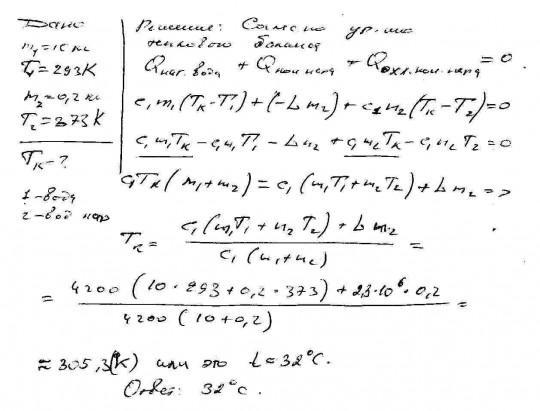 Дано
m₁=10 кг
T₁=293K
m₂=0,2 кг
T₂=373K
Tк-?
1-вода
2-вод пар
Решение: Согласно ур-ию
теплового баланса
Qнаг. вода + Qкон пара + Qохл. кон. пара = 0
c₁m₁(Tк-T₁)+(-Lm₂)+c₁m₂(Tк-T₂)=0
c₁m₁Tк-c₁m₁T₁-Lm₂+c₁m₂Tк-c₁m₂T₂=0
c₁Tк(m₁+m₂)=c₁(m₁T₁+m₂T₂)+Lm₂=>
Tк = (c₁(m₁T₁+m₂T₂)+Lm₂)/(c₁(m₁+m₂)) =
= (4200(10·293+0,2·373)+2,3·10⁶·0,2)/(4200(10+0,2)) =
≈305,3(K) или это t=32°C.
Ответ: 32°C.